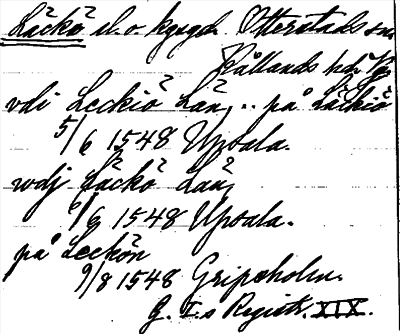 Läckö sl. o. kgsgd. Otterstads sn
Kållands hd. Vg
vdi Leckiö Län, .. på Läckiö
5/6 1548 Upsala.
wdj Läckö Län,
6/6 1548 Upsala.
på Leckön
9/8 1548 Gripsholm.
G. I.s Registr. XIX.